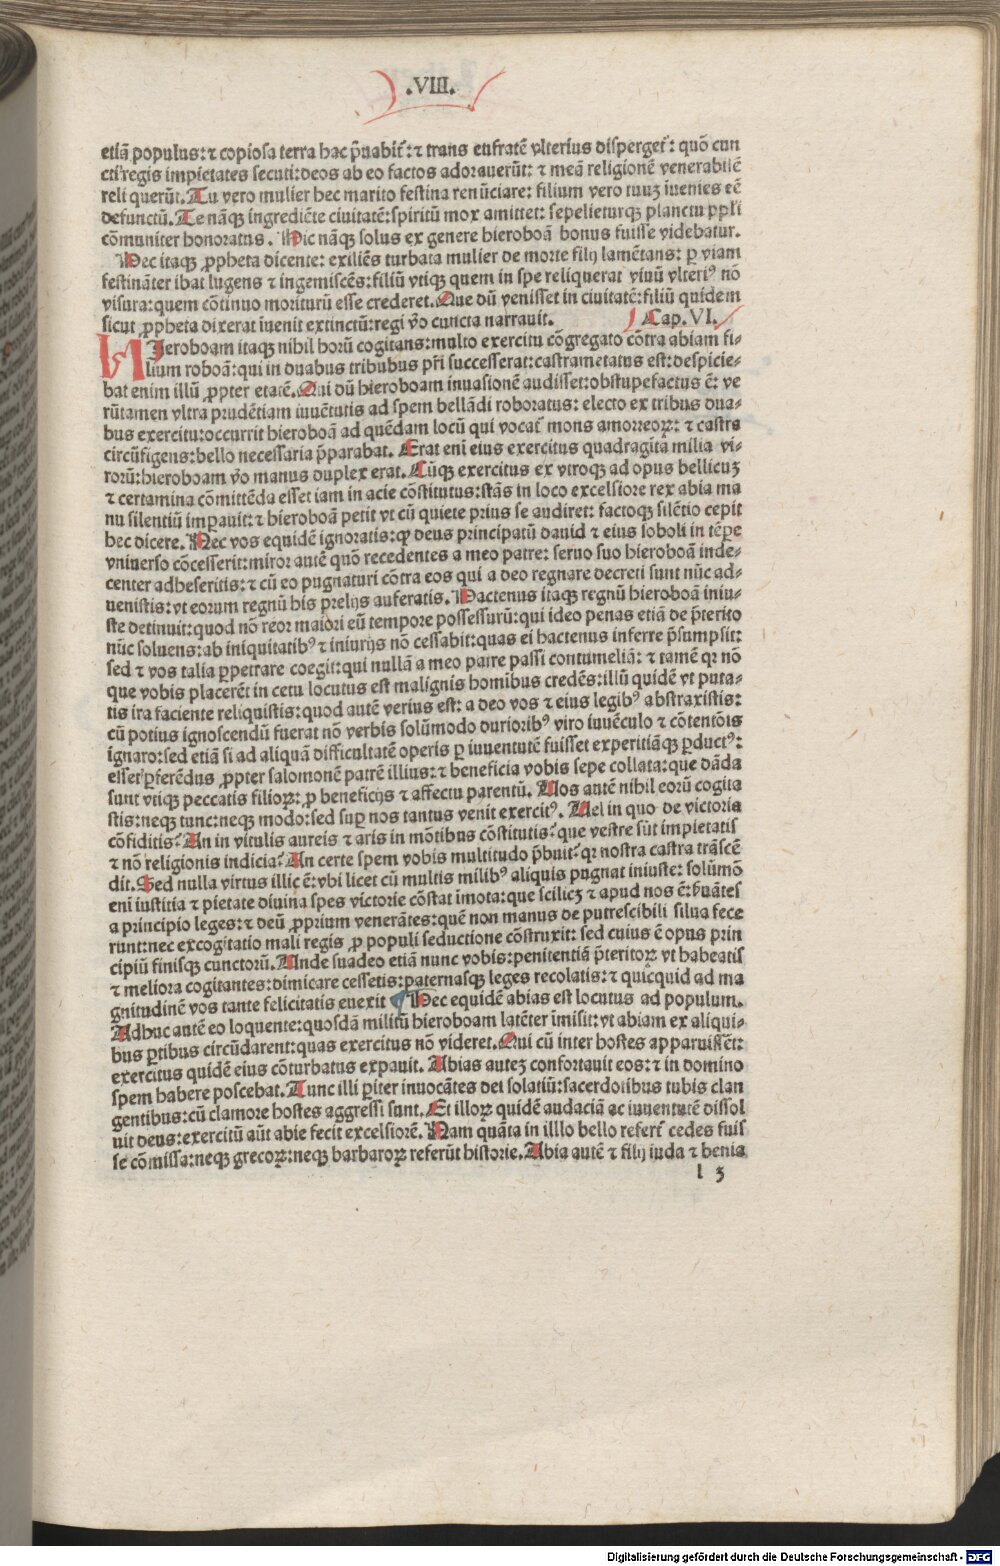 .VIII.
etiã populus: ⁊ copiosa terra hac p̃uabit᷑: ⁊ trans eufratẽ vlterius disperget᷑: quõ cun
cti regis impietates secuti: deos ab eo factos adorauerũt: ⁊ meã religionẽ venerabilẽ
reli querũt. Tu vero mulier hec marito festina renũciare: filium vero tuuꝫ ĩuenies eẽ
defunctũ. Te nãqꝫ ingrediẽte ciuitatẽ: spiritũ mox amittet: sepelieturqꝫ planctu ppl̃i
cõmuniter honoratus. Hic nãqꝫ solus ex genere hieroboã bonus fuisse videbatur.
Hec itaqꝫ ꝓpheta dicente: exiliẽs turbata mulier de morte filij lamẽtans: ꝑ viam
festinãter ibat lugens ⁊ ingemiscẽs: filiũ vtiqꝫ quem in spe reliquerat viuũ vlteriꝰ nõ
visura: quem cõtinuo moriturũ esse crederet. Que dũ venisset in ciuitatẽ: filiũ quidem
sicut ꝓpheta dixerat ĩuenit extinctũ: regi ṽo cuncta narrauit. Cap. VI.
HIeroboam itaqꝫ nihil horũ cogitans: multo exercitu cõgregato cõtra abiam fi-
lium roboã: qui in duabus tribubus pr̃i successerat: castrametatus est: despicie-
bat enim illũ ꝓpter etatẽ. Qui dũ hieroboam inuasionẽ audisset: obstupefactus ẽ: ve
rũtamen vltra prudẽtiam iuuẽtutis ad spem bellãdi roboratus: electo ex tribus dua-
bus exercitu: occurrit hieroboã ad quẽdam locũ qui vocat᷑ mons amorreoꝝ: ⁊ castra
circũfigens: bello necessaria p̃parabat. Erat eni eius exercitus quadragĩta milia vi-
rorũ: hieroboam ṽo manus duplex erat. Cũqꝫ exercitus ex vtroqꝫ ad opus bellicuꝫ
⁊ certamina cõmittẽda esset iam in acie cõstitutus: stãs in loco excelsiore rex abia ma
nu silentiũ imꝑauit: ⁊ hieroboã petit vt cũ quiete prius se audiret: factoqꝫ silẽtio cepit
hec dicere. Nec vos equidẽ ignoratis: ꝙ deus principatũ dauid ⁊ eius soboli in tẽꝑe
vniuerso cõcesserit: miror autẽ quõ recedentes a meo patre: seruo suo hieroboã inde-
center adheseritis: ⁊ cũ eo pugnaturi cõtra eos qui a deo regnare decreti sunt nũc ad-
uenistis: vt eorum regnũ his prelijs auferatis. Hactenus itaqꝫ regnũ hieroboã iniu-
ste detinuit: quod nõ reor maiori eũ tempore possessurũ: qui ideo penas etiã de p̃terito
nũc soluens: ab iniquitatibꝰ ⁊ iniurijs nõ cessabit: quas ei hactenus inferre p̃sumpsit:
sed ⁊ vos talia ꝑpetrare coegit: qui nullã a meo patre passi contumeliã: ⁊ tamẽ qꝛ nõ
que vobis placerẽt in cetu locutus est malignis homĩbus credẽs: illũ quidẽ vt puta-
tis ira faciente reliquistis: quod autẽ verius est: a deo vos ⁊ eius legibꝰ abstraxistis:
cũ potius ignoscendũ fuerat nõ verbis solũmodo durioribꝰ viro iuuẽculo ⁊ cõtentõis
ignaro: sed etiã si ad aliquã difficultatẽ operis ꝑ iuuentutẽ fuisset experitiãqꝫ ꝑductꝰ:
esset ꝑferẽdus ꝓpter salomonẽ patrẽ illius: ⁊ beneficia vobis sepe collata: que dãda
sunt vtiqꝫ peccatis filioꝝ: ꝓ beneficijs ⁊ affectu parentũ. Vos autẽ nihil eorũ cogita
stis: neqꝫ tunc: neqꝫ modo: sed suꝑ nos tantus venit exercitꝰ. Vel in quo de victoria
cõfiditis? An in vitulis aureis ⁊ aris in mõtibus cõstitutis? que vestre sũt impietatis
⁊ nõ religionis indicia? An certe spem vobis multitudo p̃buit? qꝛ nostra castra trãscẽ
dit. Sed nulla virtus illic ẽ: vbi licet cũ multis milibꝰ aliquis pugnat iniuste: solũmõ
eni iustitia ⁊ pietate diuina spes victorie cõstat ĩmota: que scilicꝫ ⁊ apud nos ẽ: ẜuãtes
a principio leges: ⁊ deũ ꝓprium venerãtes: quẽ non manus de putrescibili silua fece
runt: nec excogitatio mali regis ꝓ populi seductione cõstruxit: sed cuius ẽ opus prin
cipiũ finisqꝫ cunctorũ. Vnde suadeo etiã nunc vobis: penitentiã p̃teritoꝝ vt habeatis
⁊ meliora cogitantes: dimicare cessetis: paternasqꝫ leges recolatis: ⁊ quicquid ad ma
gnitudinẽ vos tante felicitatis euexit Hec equidẽ abias est locutus ad populum.
Adhuc autẽ eo loquente: quosdã militũ hieroboam latẽter ĩmisit: vt abiam ex aliqui-
bus ꝑtibus circũdarent: quas exercitus nõ videret. Qui cũ inter hostes apparuissẽt:
exercitus quidẽ eius cõturbatus expauit. Abias auteꝫ confortauit eos: ⁊ in domino
spem habere poscebat. Tunc illi ꝑiter inuocãtes dei solatiũ: sacerdotibus tubis clan
gentibus: cũ clamore hostes aggressi sunt. Et illoꝝ quidẽ audaciã ac iuuentutẽ dissol
uit deus: exercitũ aũt abie fecit excelsiorẽ. Nam quãta in illlo bello refert᷑ cedes fuis
se cõmissa: neqꝫ grecoꝝ: neqꝫ barbaroꝝ referũt historie. Abia autẽ ⁊ filij iuda ⁊ benia
l 3
Digitalisierung gefördert durch die Deutsche Forschungsgemeinschaft - DFG